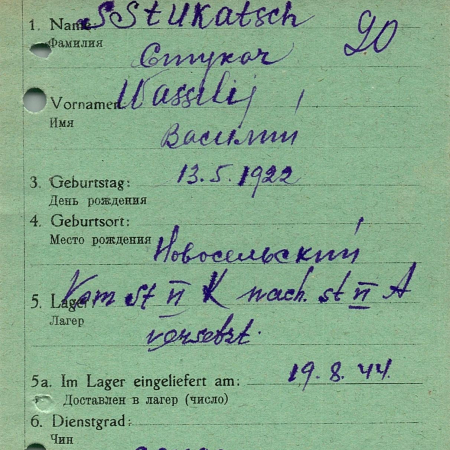 1. Name: SStukatsch
Фамилия
Стукач
90
Vorname: Wassilij
Имя
Василий
3. Geburtstag: 13.5.1922
День рождения
4. Geburtsort:
Место рождения
Новосельский
Vom St II K nach. St II A
5. Lager:
Лагер
versetzt.
5a. Im Lager eingeliefert am: 19.8.44.
Доставлен в лагер (число)
6. Dienstgrad:
Чин